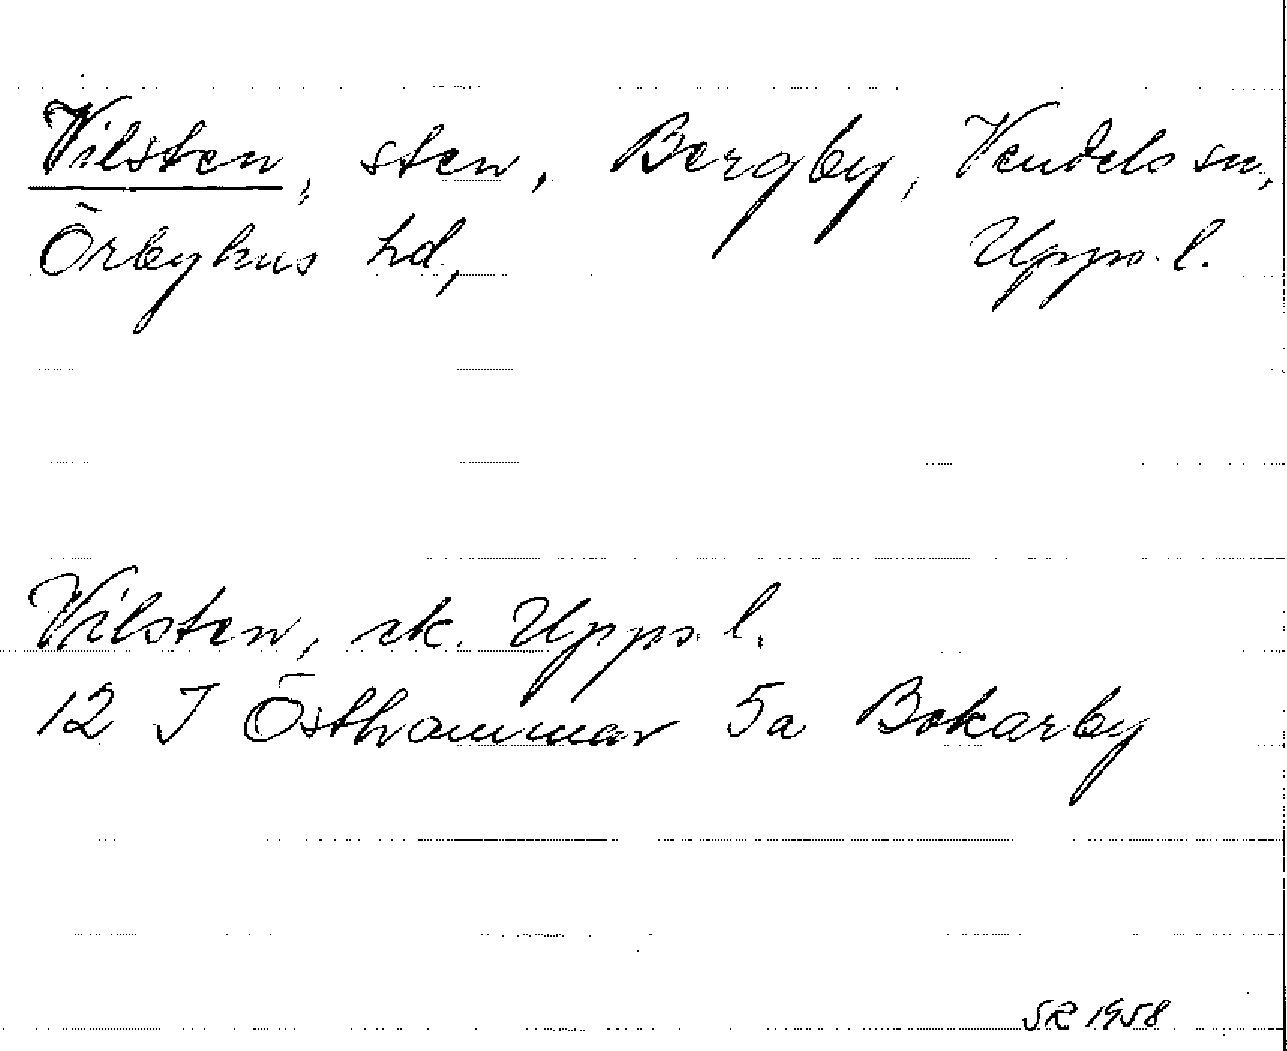 Vilsten, sten, Bergby, Vendels sn,
Örbyhus hd, Upps. l.
Vilsten, sk. Upps. l.
12 I Östhammar 5a Bokarby
SR 1958